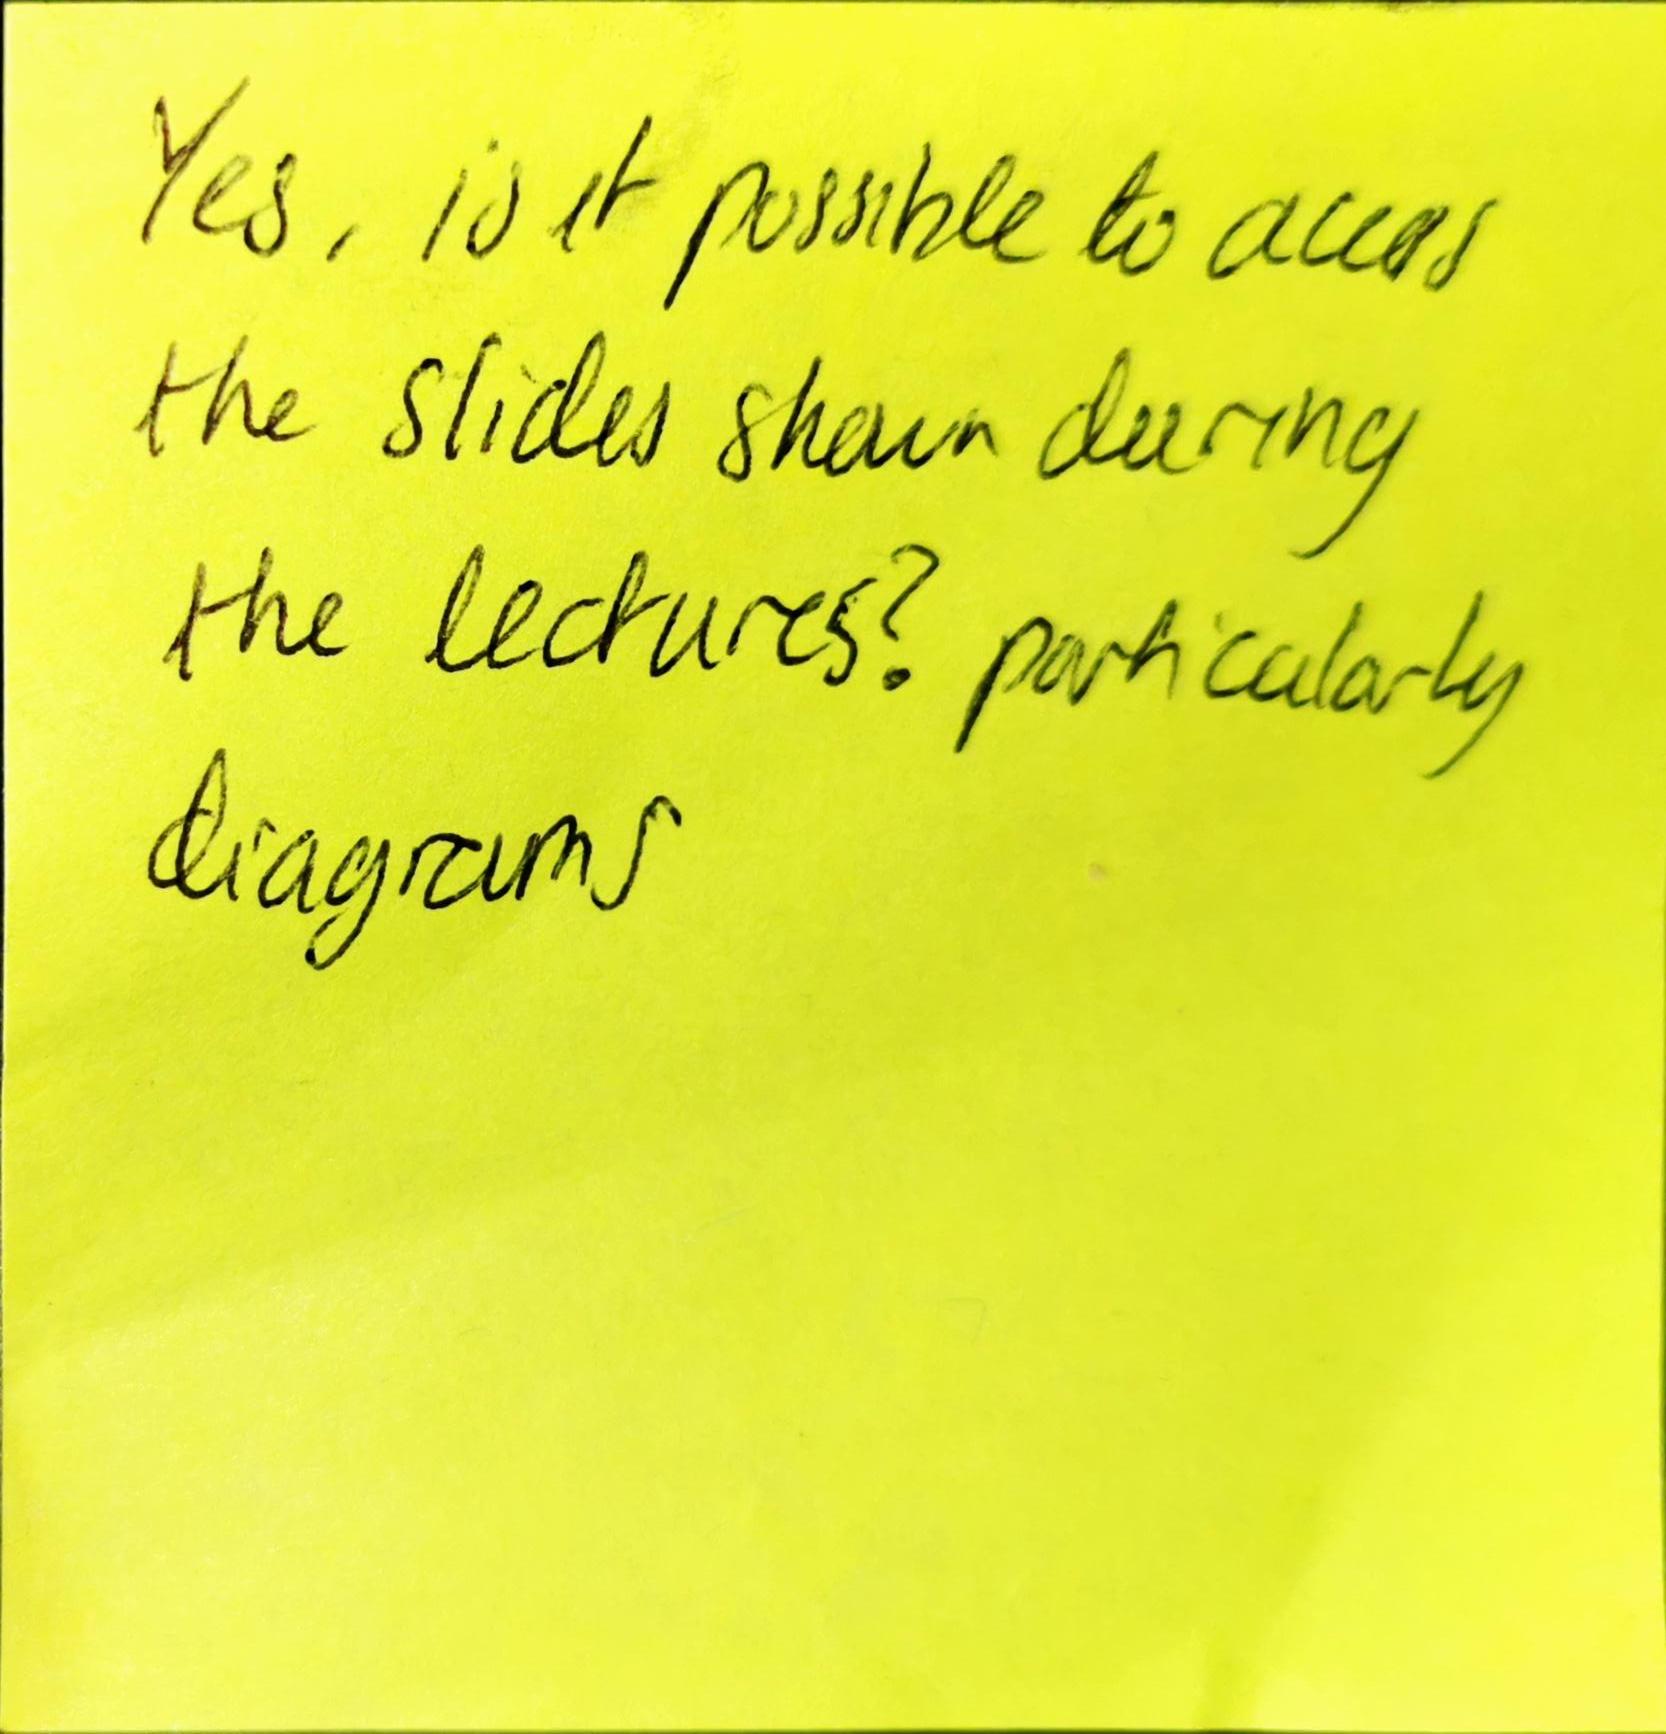 Yes, is it possible to access
the slides shown during
the lectures? particularly
diagrams